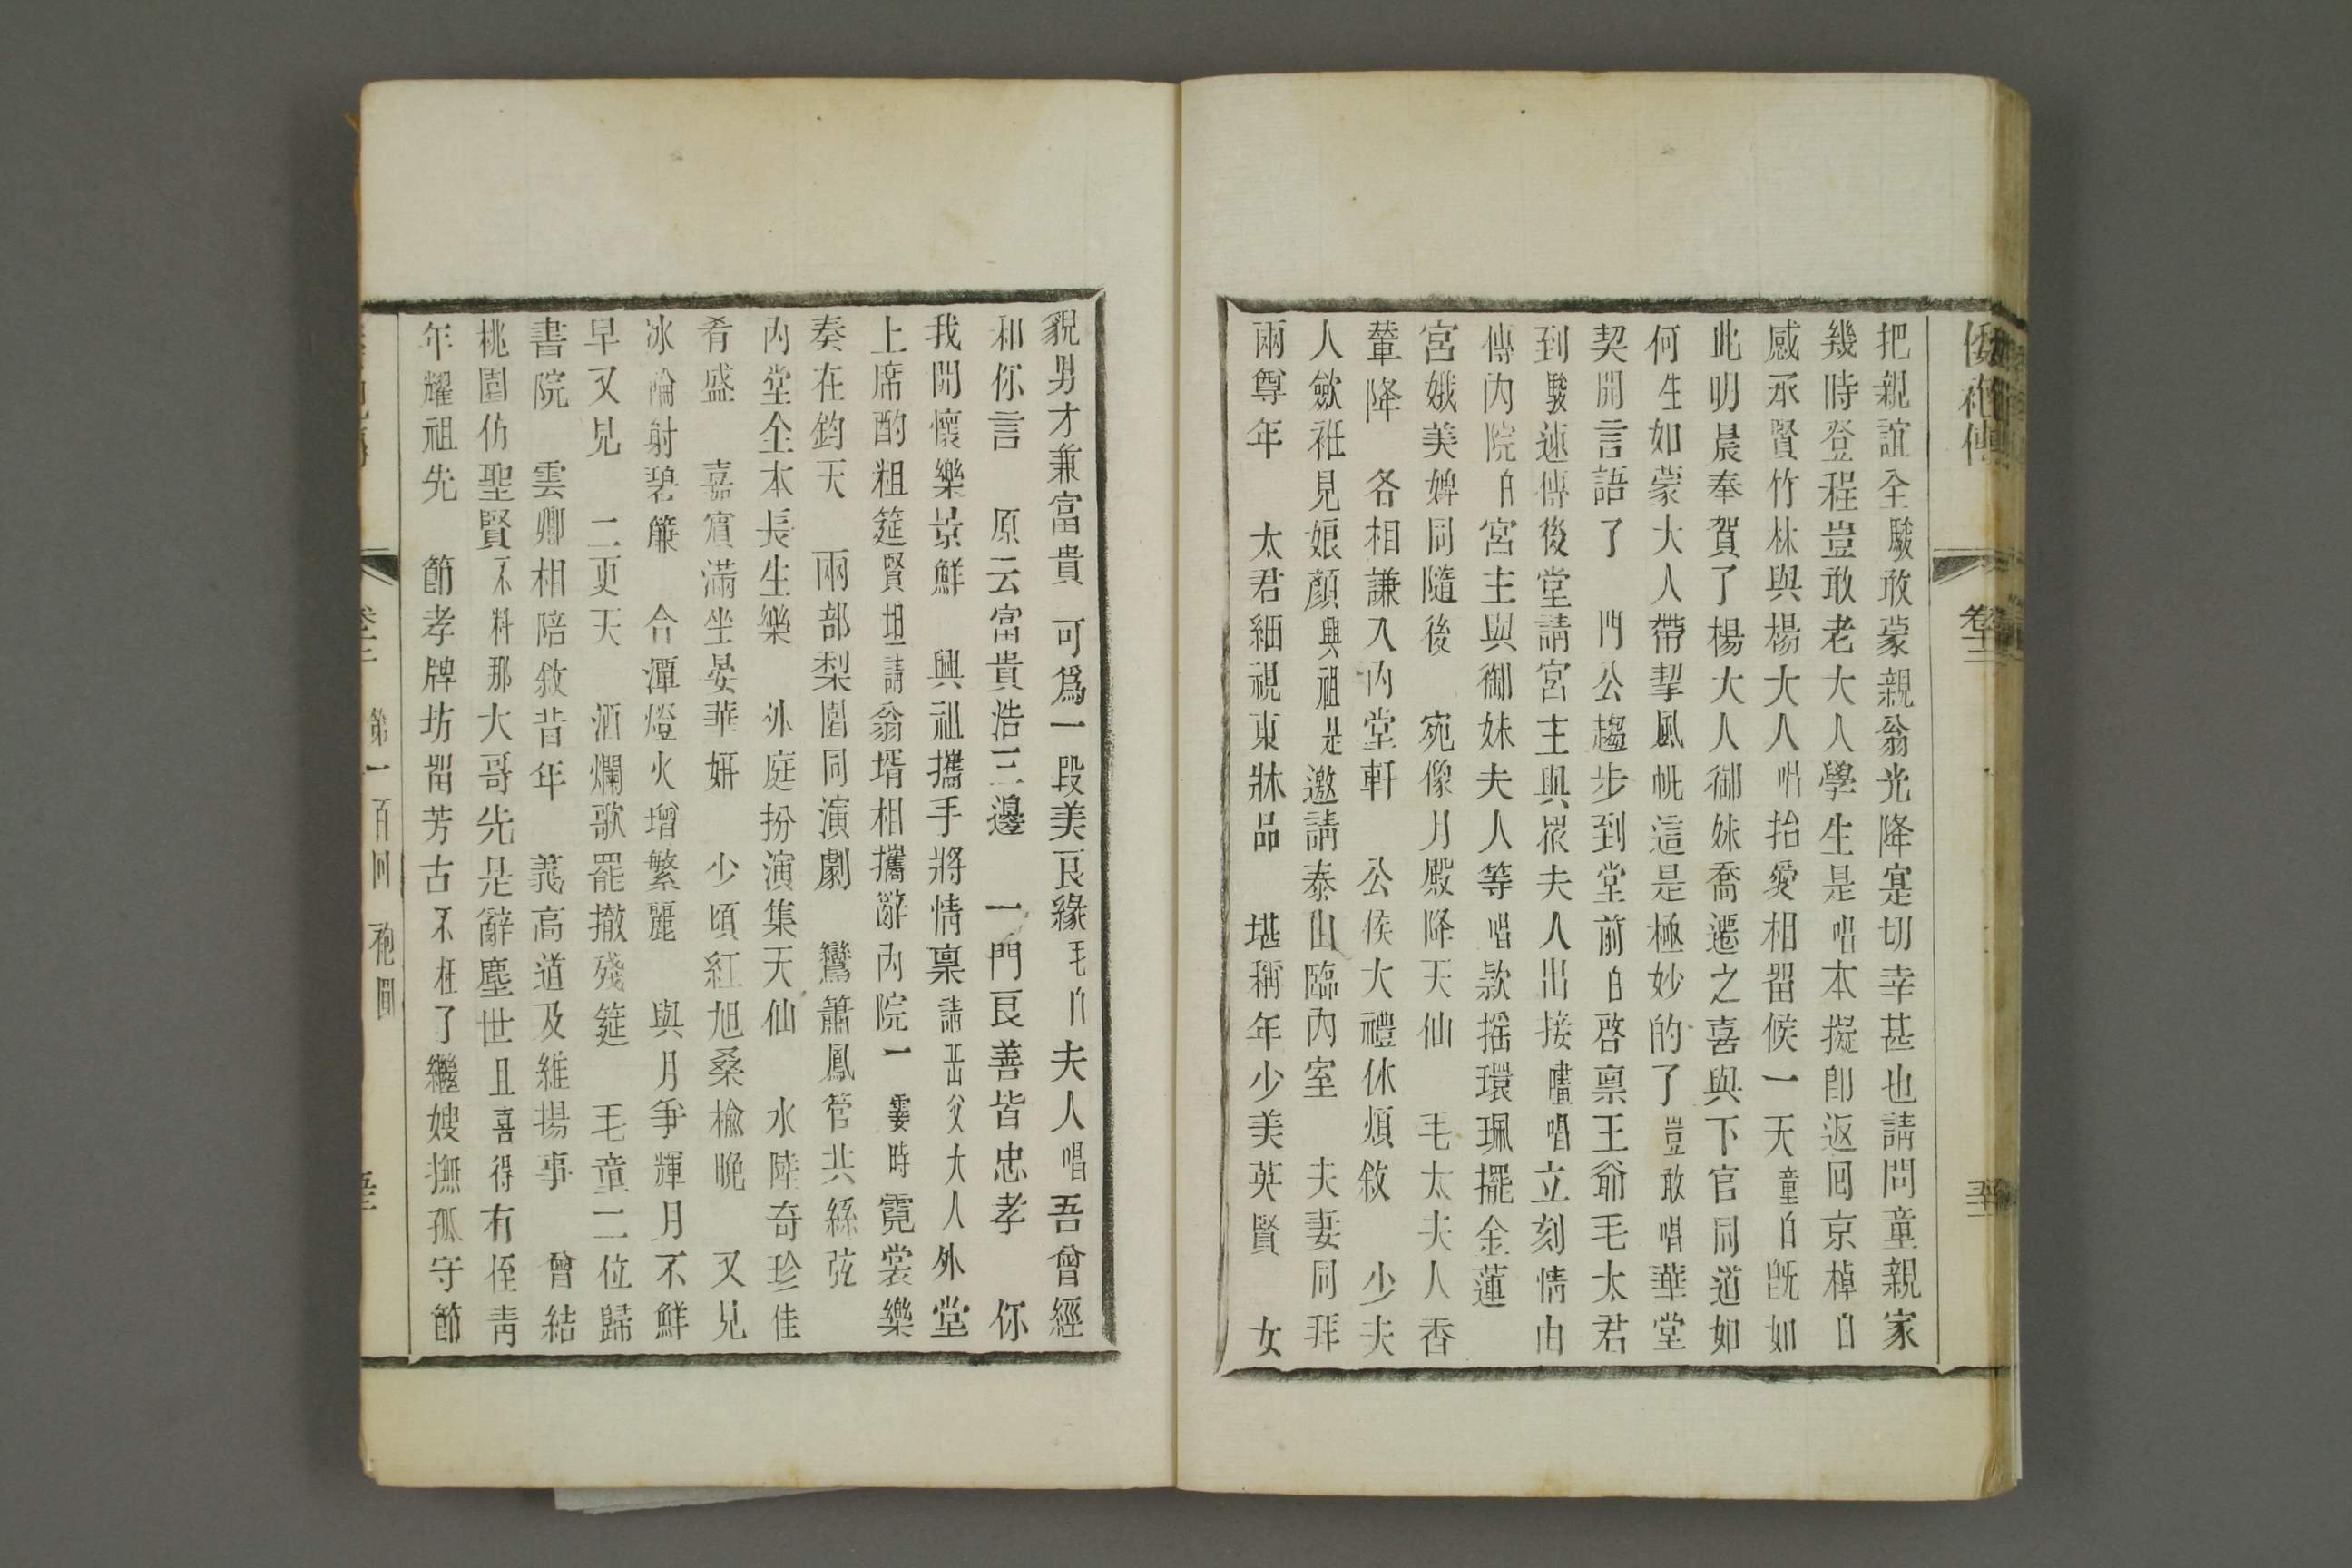 倭袍傳
卷十二
把親誼全駿敢蒙親翁光降寔切幸甚也請問童親家
幾時登程豈敢老大人學生是唱本擬卽返回京棹白
感承賢竹林與楊大人唱抬愛相畱候一天童白旣如
此明晨奉賀了楊大人御妹喬遷之喜與下官同道如
何生如蒙大人帶挈風帆這是極妙的了豈敢唱華堂
契開言語了 門公趨步到堂前白啓禀王爺毛太君
到駿速傳後堂請宮主與眾夫人出接嚍唱立刻情由
傳內院白宮主與御妹夫人等唱款搖環珮擺金蓮
宮娥美婢同隨後 宛像月殿降天仙 毛太夫人香
輦降 各相謙入內堂軒 公侯大禮休煩敘 少夫
人歛袵見娘顏興祖是邀請泰山臨內室 夫妻同拜
兩尊年 太君細視東牀品 堪稱年少美英賢 女
貌男才兼富貴 可爲一段美良緣毛白夫人唱吾曾經
和你言 原云富貴浩三邊 一門良善皆忠孝 你
我開懷樂景鮮 興祖攜手將情禀請岳父大人外堂
上席酌粗筵賢坦請翁壻相攜辭內院一霎時霓裳樂
奏在鈞天 兩部梨園同演劇 鸞簫鳳管共絲弦
內堂全本長生樂 外庭扮演集天仙 水陸奇珍佳
肴盛 嘉賓滿坐晏華妍 少頃紅旭桑榆晚 又見
冰輪射碧簾 合潭燈火增繁麗 與月爭輝月不鮮
早又見 二更天 酒爛歌罷撤殘筵 毛童二位歸
書院 雲卿相陪敘昔年 義高道及維揚事 曾結
桃園仿聖賢不料那大哥先是辭塵世且喜得有侄靑
年耀祖先 節孝牌坊畱芳古不枉了繼嫂撫孤守節
第一百回 袍圓